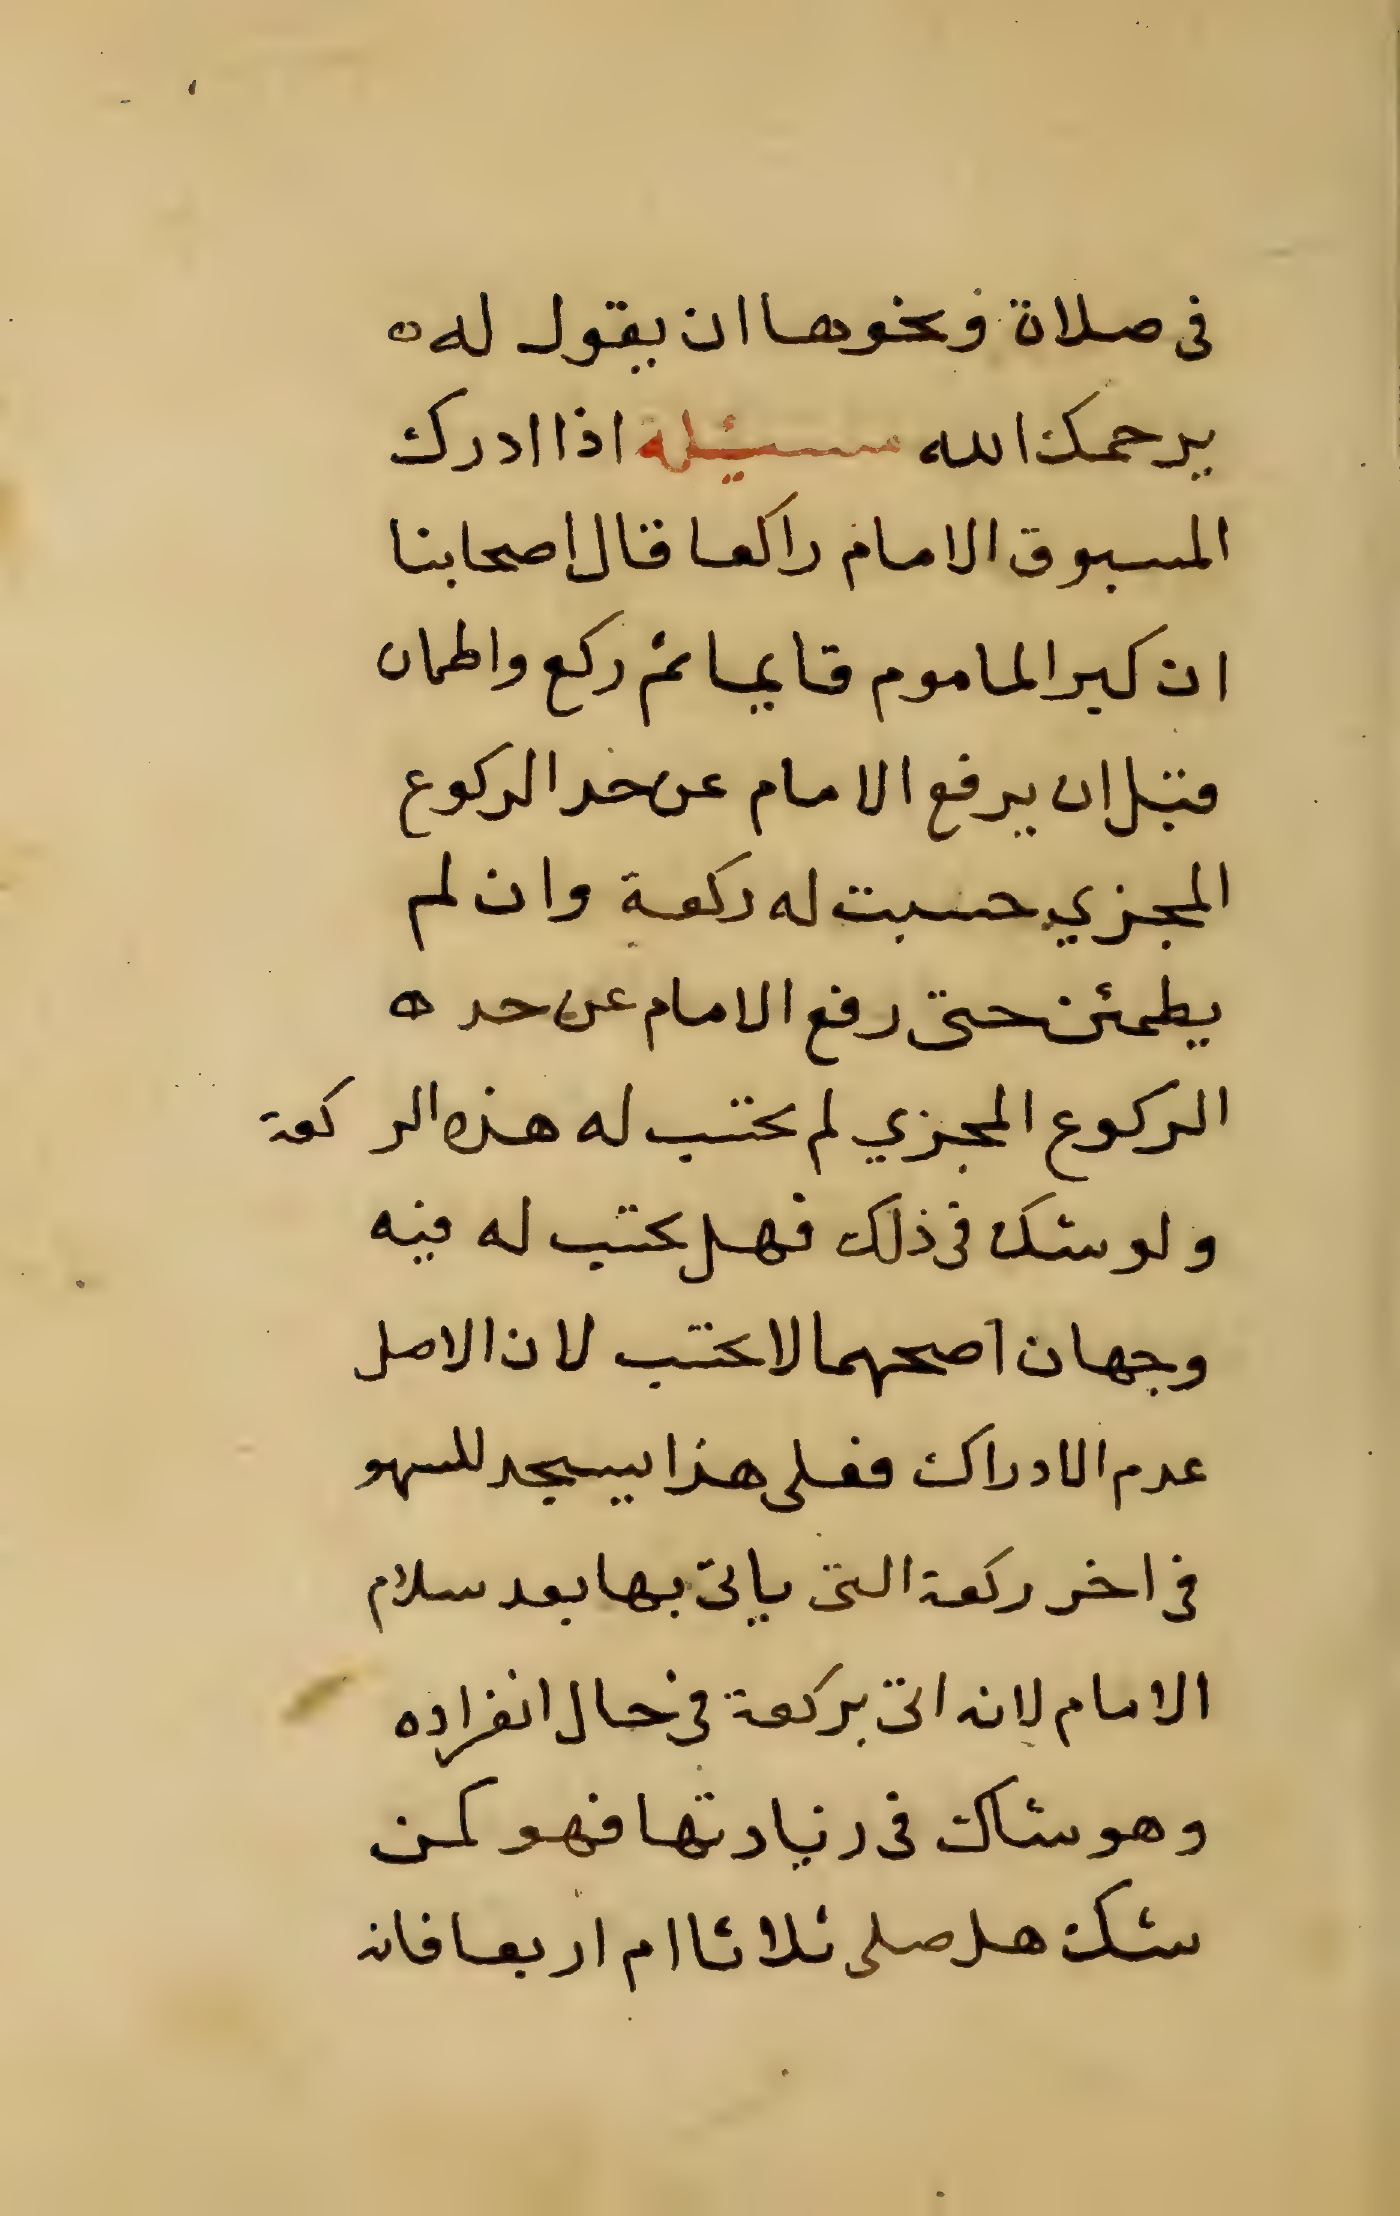 في صلاة ونحوها ان يقول له ه
يرحمك الله مسيئلة اذا ادرك
المسبوق الامام راكعا قال اصحابنا
ان كبر الماموم قايما ثم ركع واطمان
قبل ان يرفع الامام عن حد الركوع
المجزي حسبت له ركعة وان لم
يطمئن حتى رفع الامام عن حد ه
الركوع المجزي لم تحتسب له هذه الركعة
ولو شك في ذلك فهل تحتسب له فيه
وجهان اصحهما لا تحتسب لان الاصل
عدم الادراك فعلى هذا يسجد للسهو
في اخر ركعة التى ياتى بها بعد سلام
الامام لانه اتى بركعة في حال انفراده
وهو شاك في زيادتها فهو كمن
شك هل صلى ثلاثا ام اربعا فانه